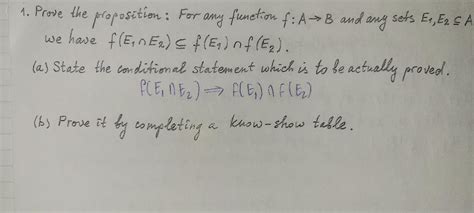 1. Prove the proposition: For any function f: A→B and any sets E₁,E₂ ⊆ A
we have f(E₁∩E₂) ⊆ f(E₁)∩f(E₂).
(a) State the conditional statement which is to be actually proved.
f(E₁∩E₂) ⟹ f(E₁)∩f(E₂)
(b) Prove it by completing a know-show table.